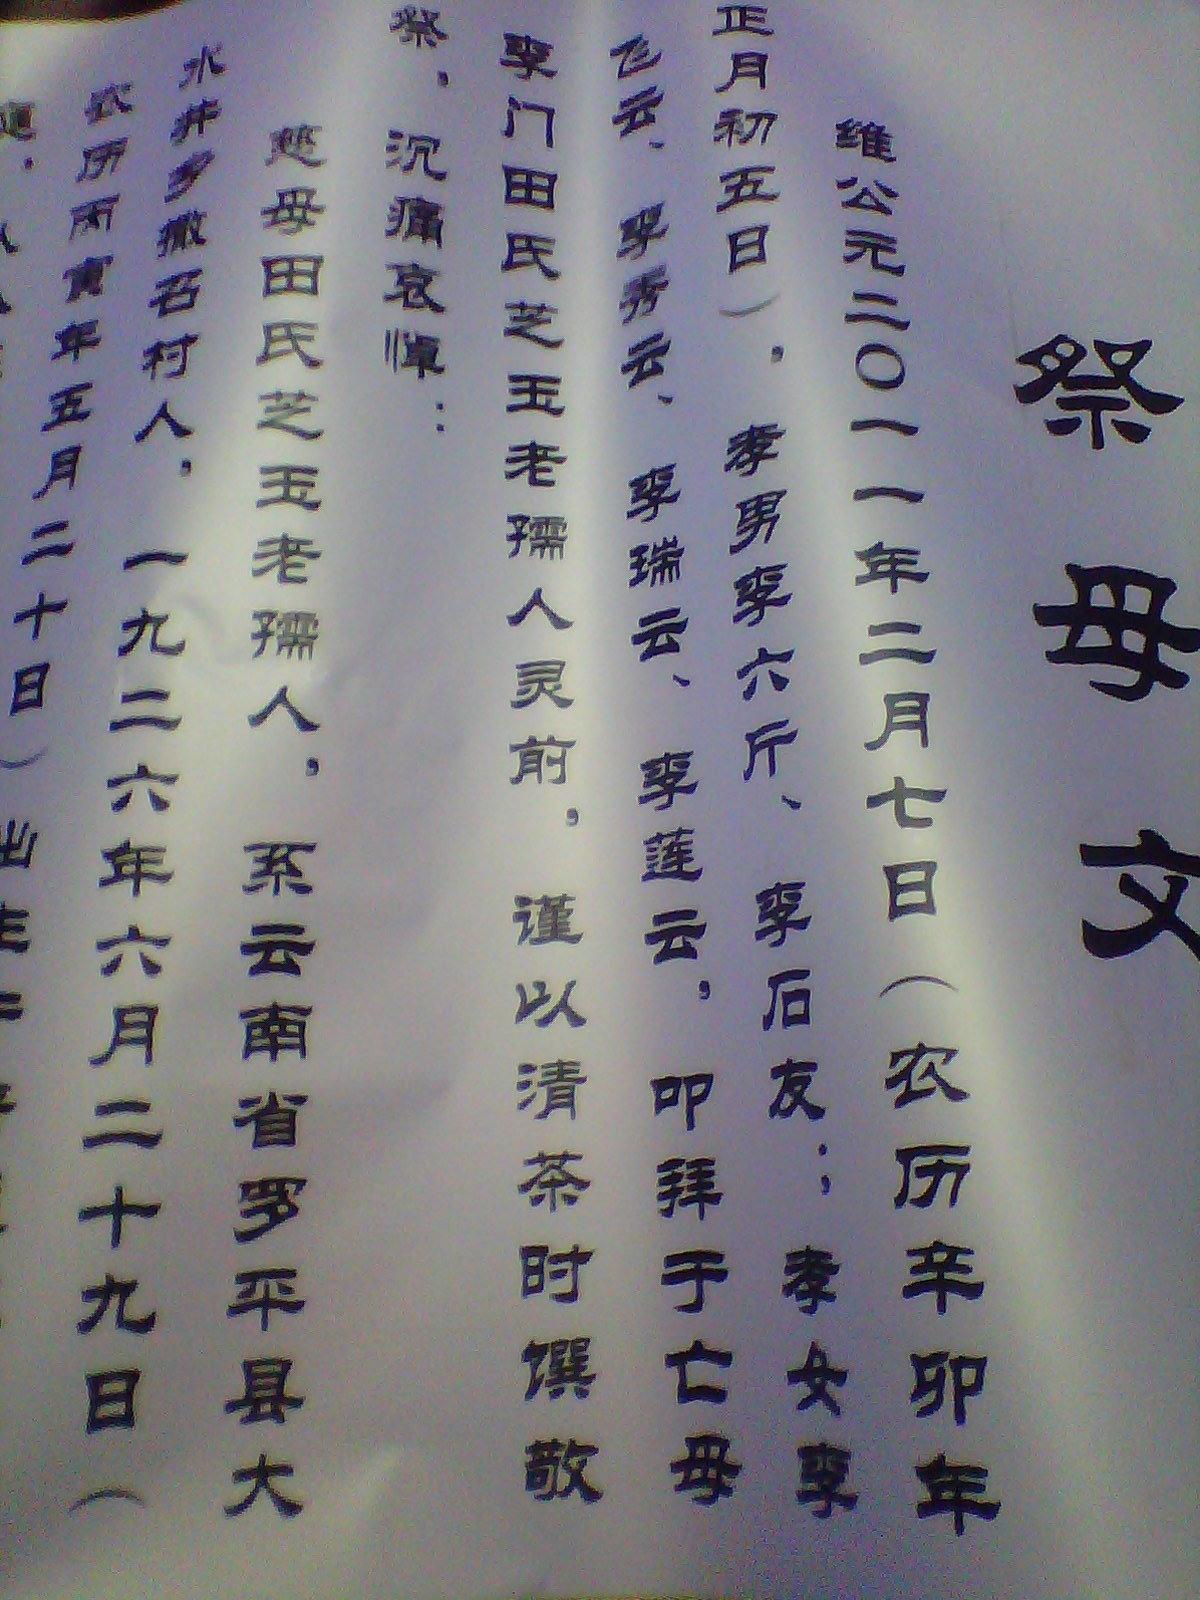 祭母文
维公元二〇一一年二月七日（农历辛卯年
正月初五日），孝男李六斤、李石友；孝女李
飞云、李秀云、李瑞云、李莲云，叩拜于亡母
李门田氏芝玉老孺人灵前，谨以清茶时馔敬
祭，沉痛哀悼：
慈母田氏芝玉老孺人，系云南省罗平县大
水井乡撒召村人，一九二六年六月二十九日（
农历丙寅年五月二十日）出生